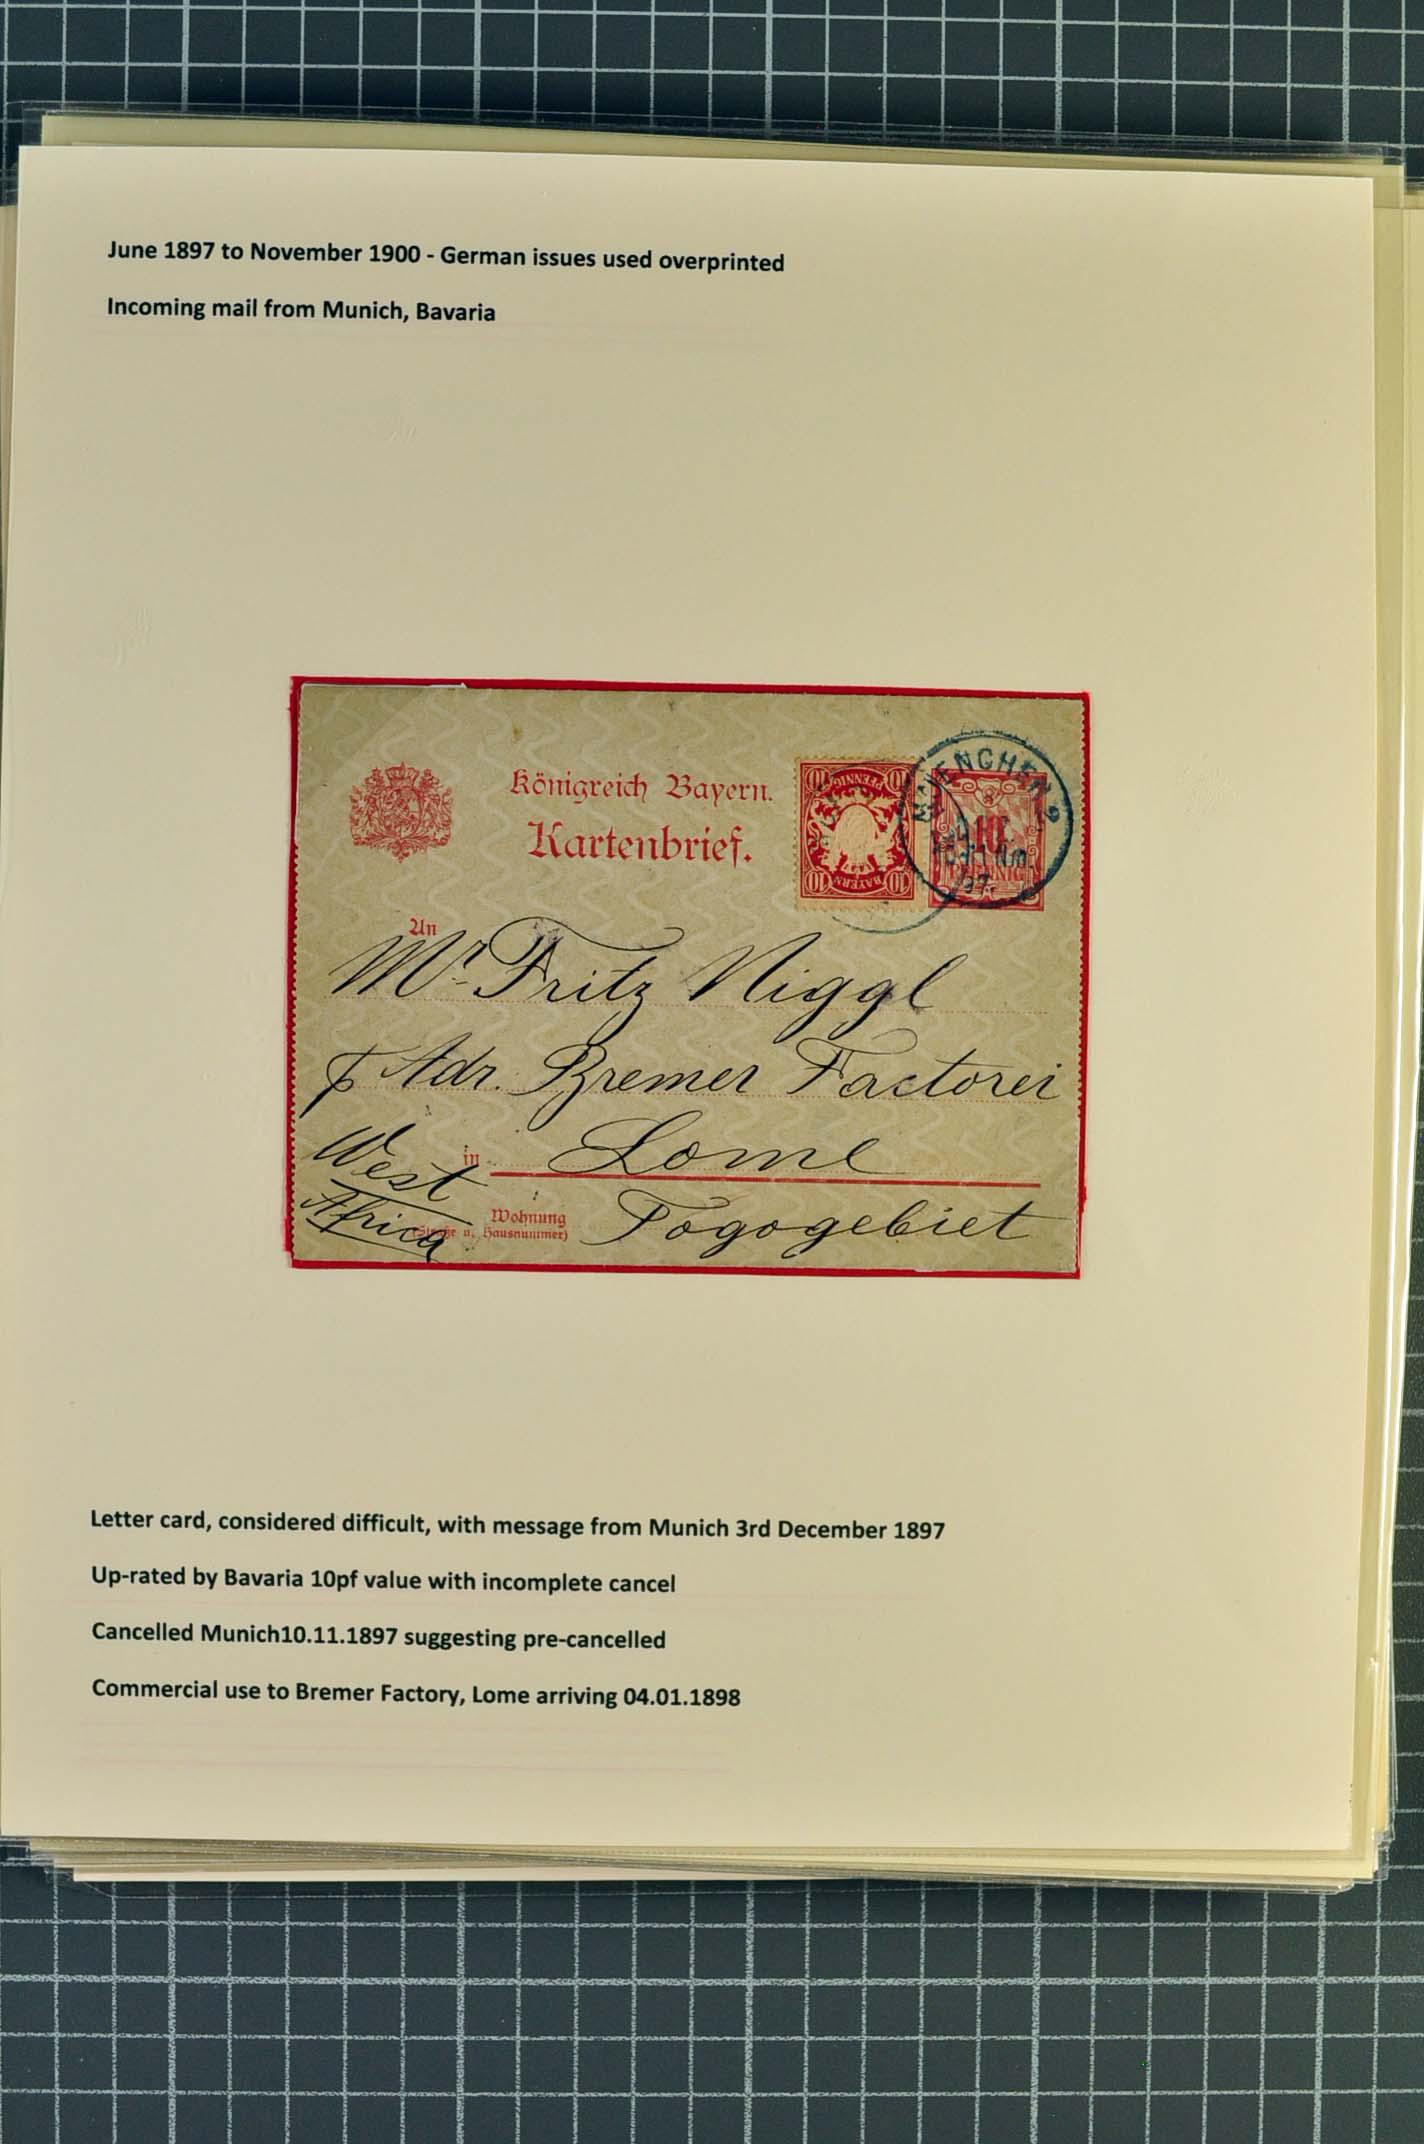 June 1897 to November 1900 - German issues used overprinted
Incoming mail from Munich, Bavaria
Königreich Bayern.
Kartenbrief.
10 PFENNIG 10
10 BAYERN 10
MUENCHEN 2
10-11 Nm.
97.
PFENNIG
An
Mr. Fritz Niggl
p Adr. Bremer Factorei
in Lome
West Africa
Wohnung
(Straße u. Hausnummer)
Togogebiet
Letter card, considered difficult, with message from Munich 3rd December 1897
Up-rated by Bavaria 10pf value with incomplete cancel
Cancelled Munich10.11.1897 suggesting pre-cancelled
Commercial use to Bremer Factory, Lome arriving 04.01.1898